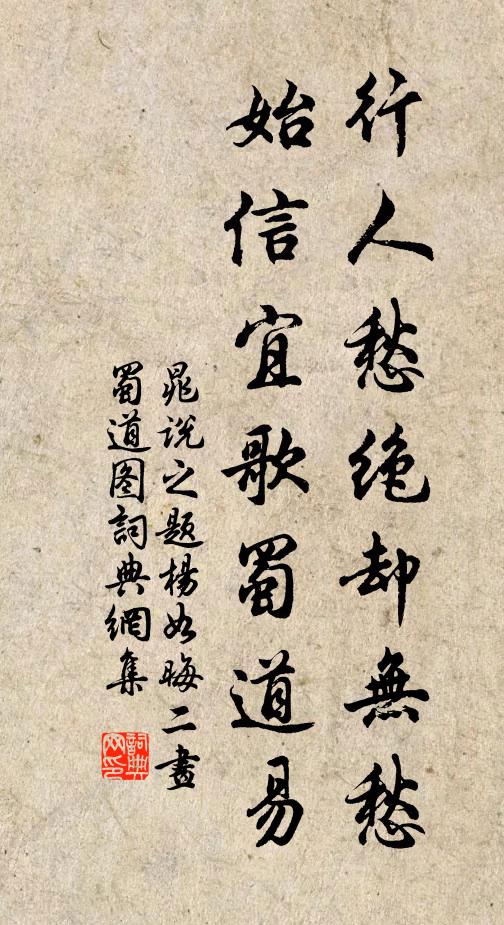 行人愁绝却無愁
始信宜歌蜀道易
晁说之题楊如晦二畫
蜀道图詞典網集
詞典网印